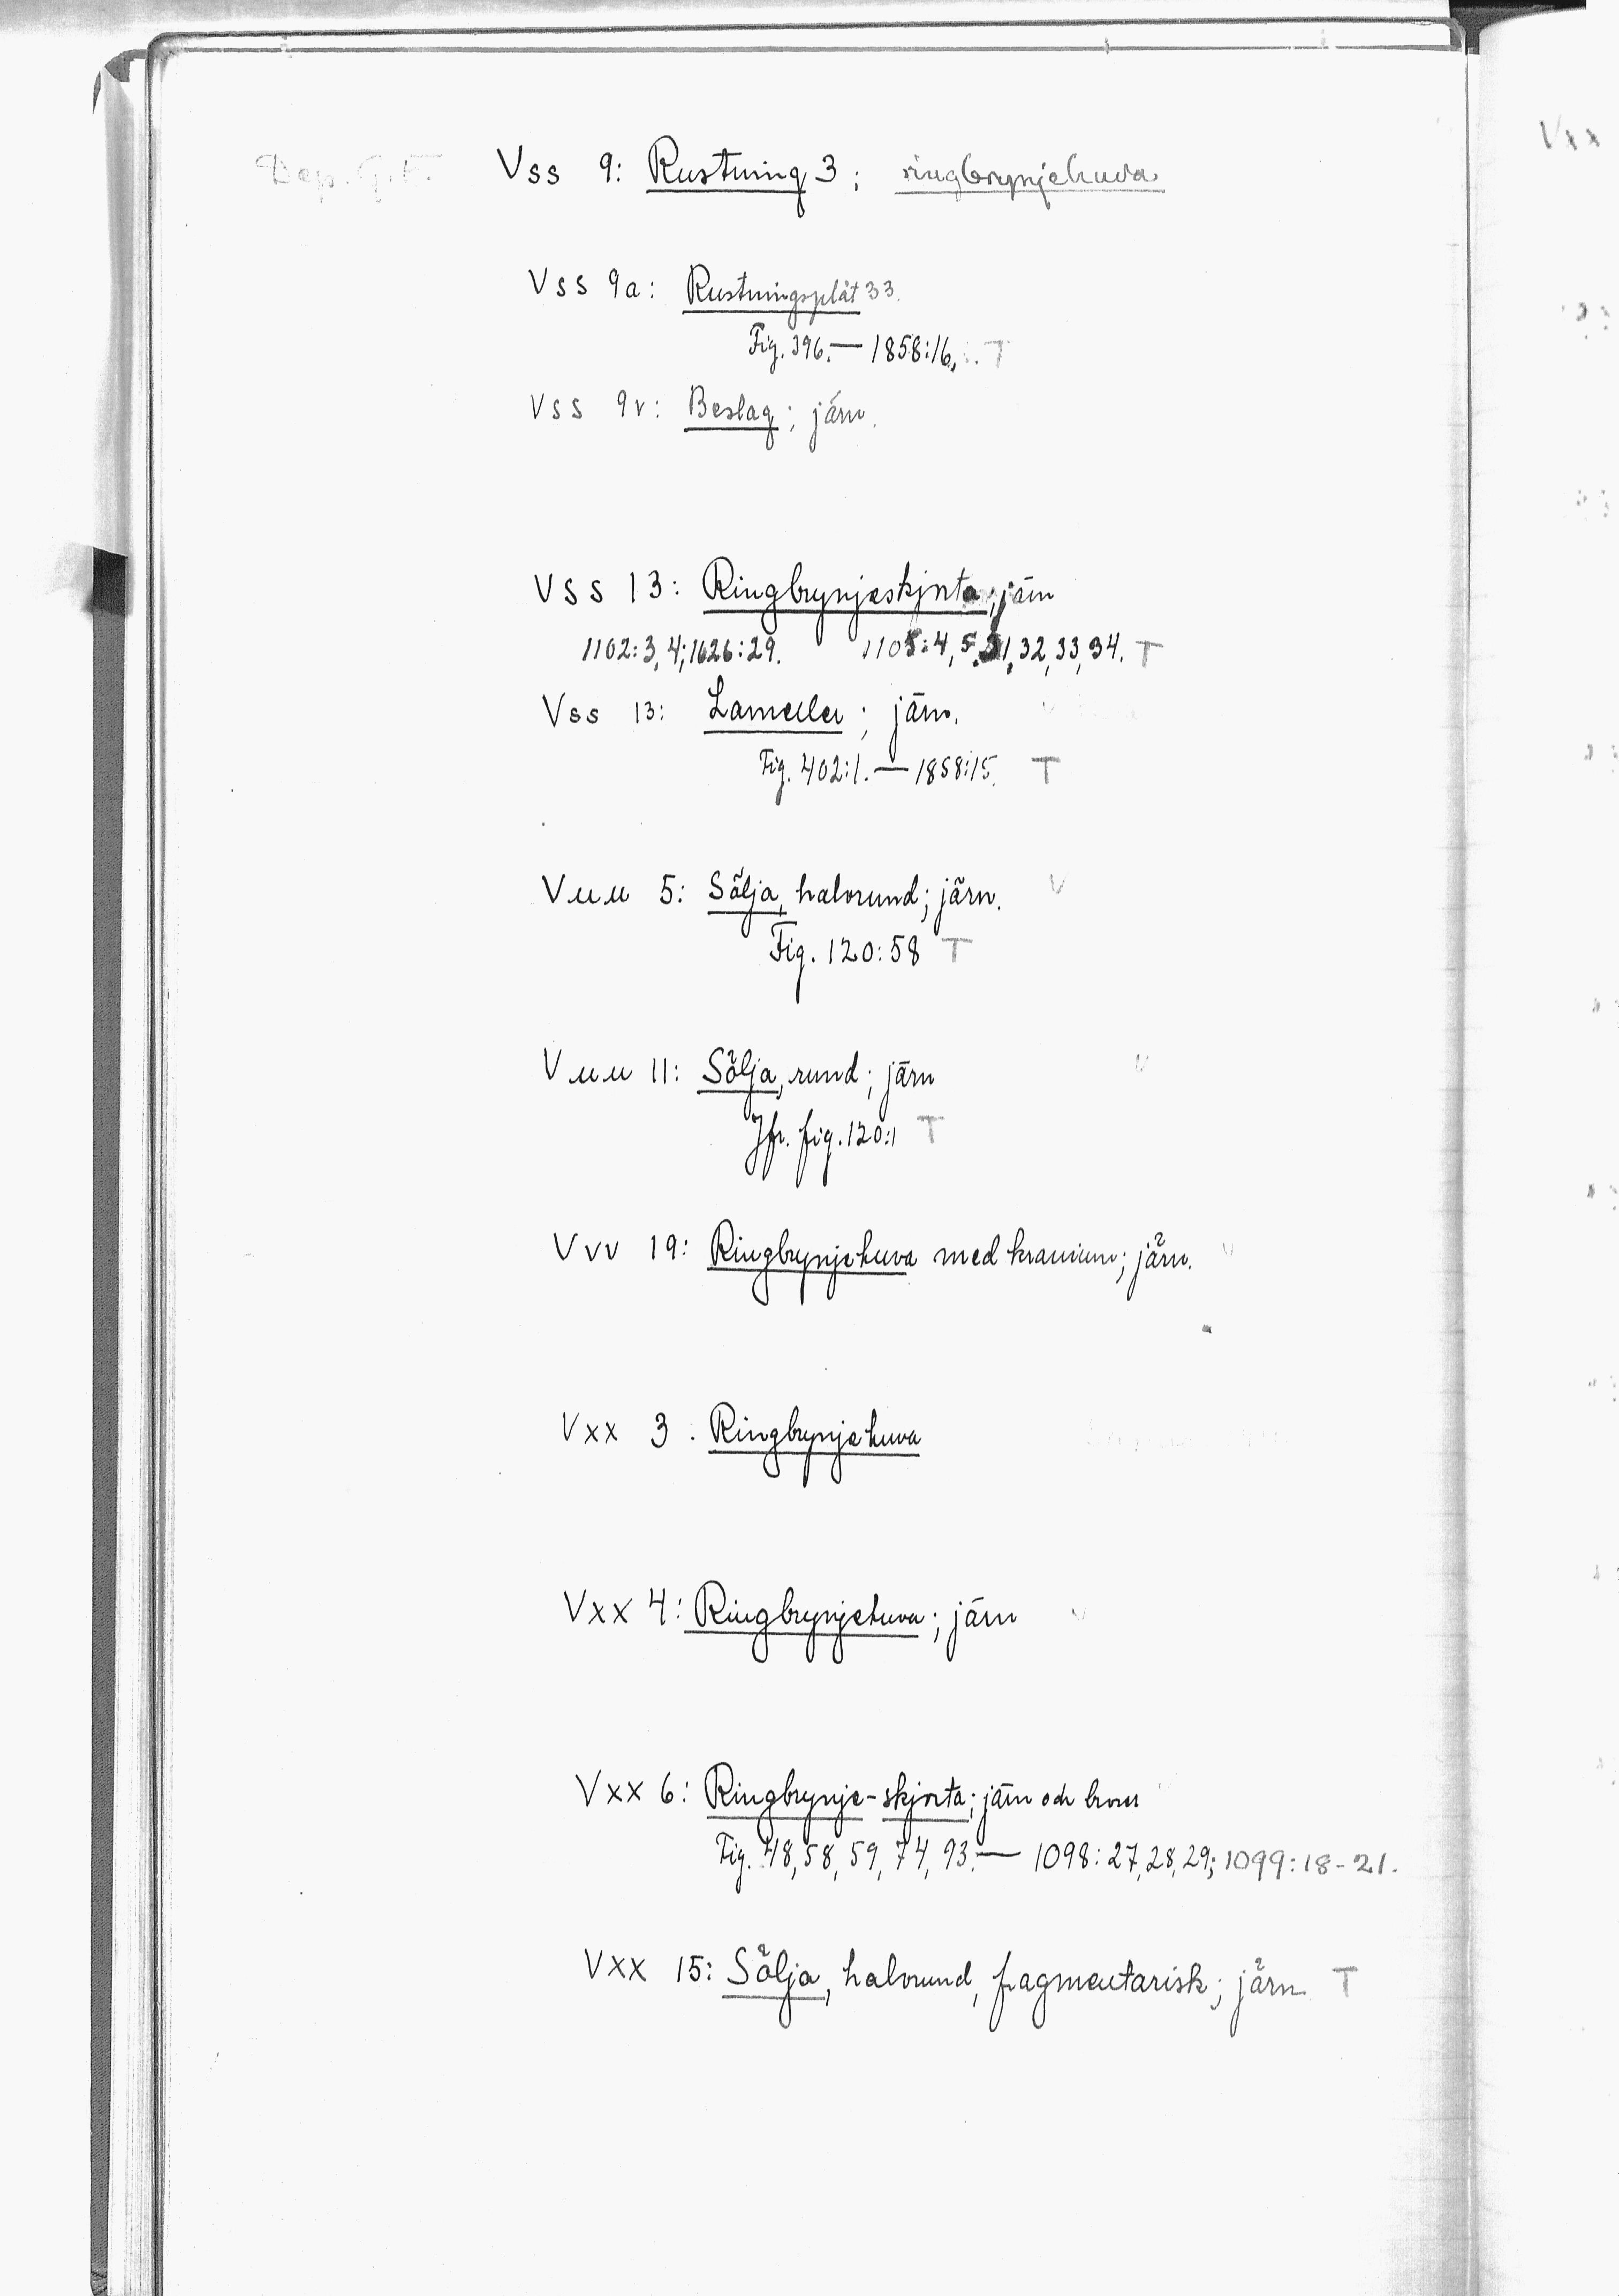 Dep. G. F. Vss 9: Rustning 3; ringbrynjehuva
Vss 9a: Rustningsplåt 33.
Fig. 396. — 1858:16. T
Vss 9v: Beslag; järn.
Vss 13: Ringbrynjeskjorta; järn
1102:3, 4; 1626:29. 1105:4, 5, 31, 32, 33, 34. T
Vss 13: Lameller; järn. v
Fig. 402:1. — 1858:15. T
Vuu 5: Sölja, halvrund; järn. v
Fig. 120:58 T
Vuu 11: Sölja, rund; järn v
Jfr. fig. 120:1 T
Vvv 19: Ringbrynjehuva med kranium; järn. v
Vxx 3: Ringbrynjehuva
Vxx 4: Ringbrynjehuva; järn v
Vxx 6: Ringbrynje-skjorta; järn och brons
Fig. 48, 58, 59, 74, 93. — 1098:27, 28, 29; 1099:18-21.
Vxx 15: Sölja, halvrund, fragmentarisk; järn. T
Vxx